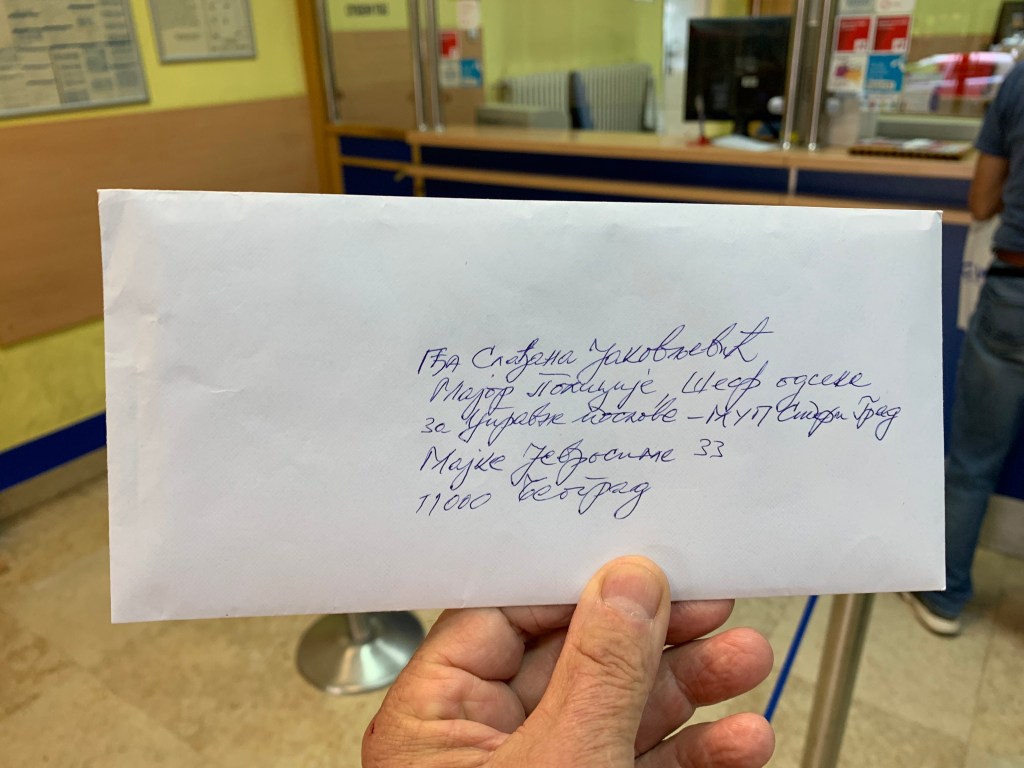 Гђа Слађана Јаковљевић
Мајор Полиције, Шеф одсека
за управне послове - МУП Стари Град
Мајке Јевросиме 33
11000 Београд